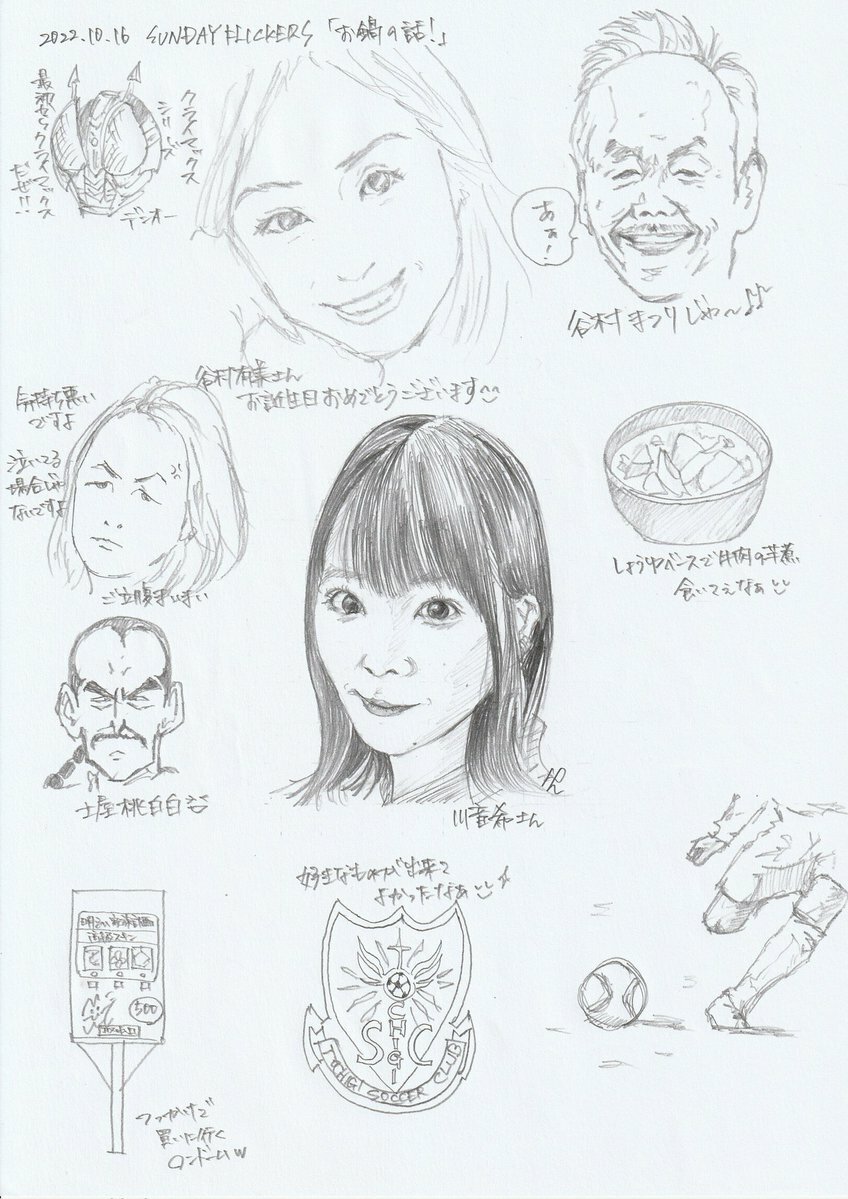 2022.10.16 SUNDAY FLICKERS「お鍋の話!」
クライマックス
シリーズ
最初からクライマックス
だぜ!!
デンオー
あぁ!
谷村まつりじゃ〜♪♪
谷村有美さん
お誕生日おめでとうございます
気持ち悪い
ですよ
泣いてる
場合じゃ
ないですよ
ご立腹まいまい
しょうゆベースで牛肉の芋煮
食いてえなぁ
土屋桃白白
川音希さん
好きなものが出来て
よかったなぁ
TOCHIGI
SC
TOCHIGI SOCCER CLUB
明るい家族計画
500
つっかけで
買いに行く
コンドームw